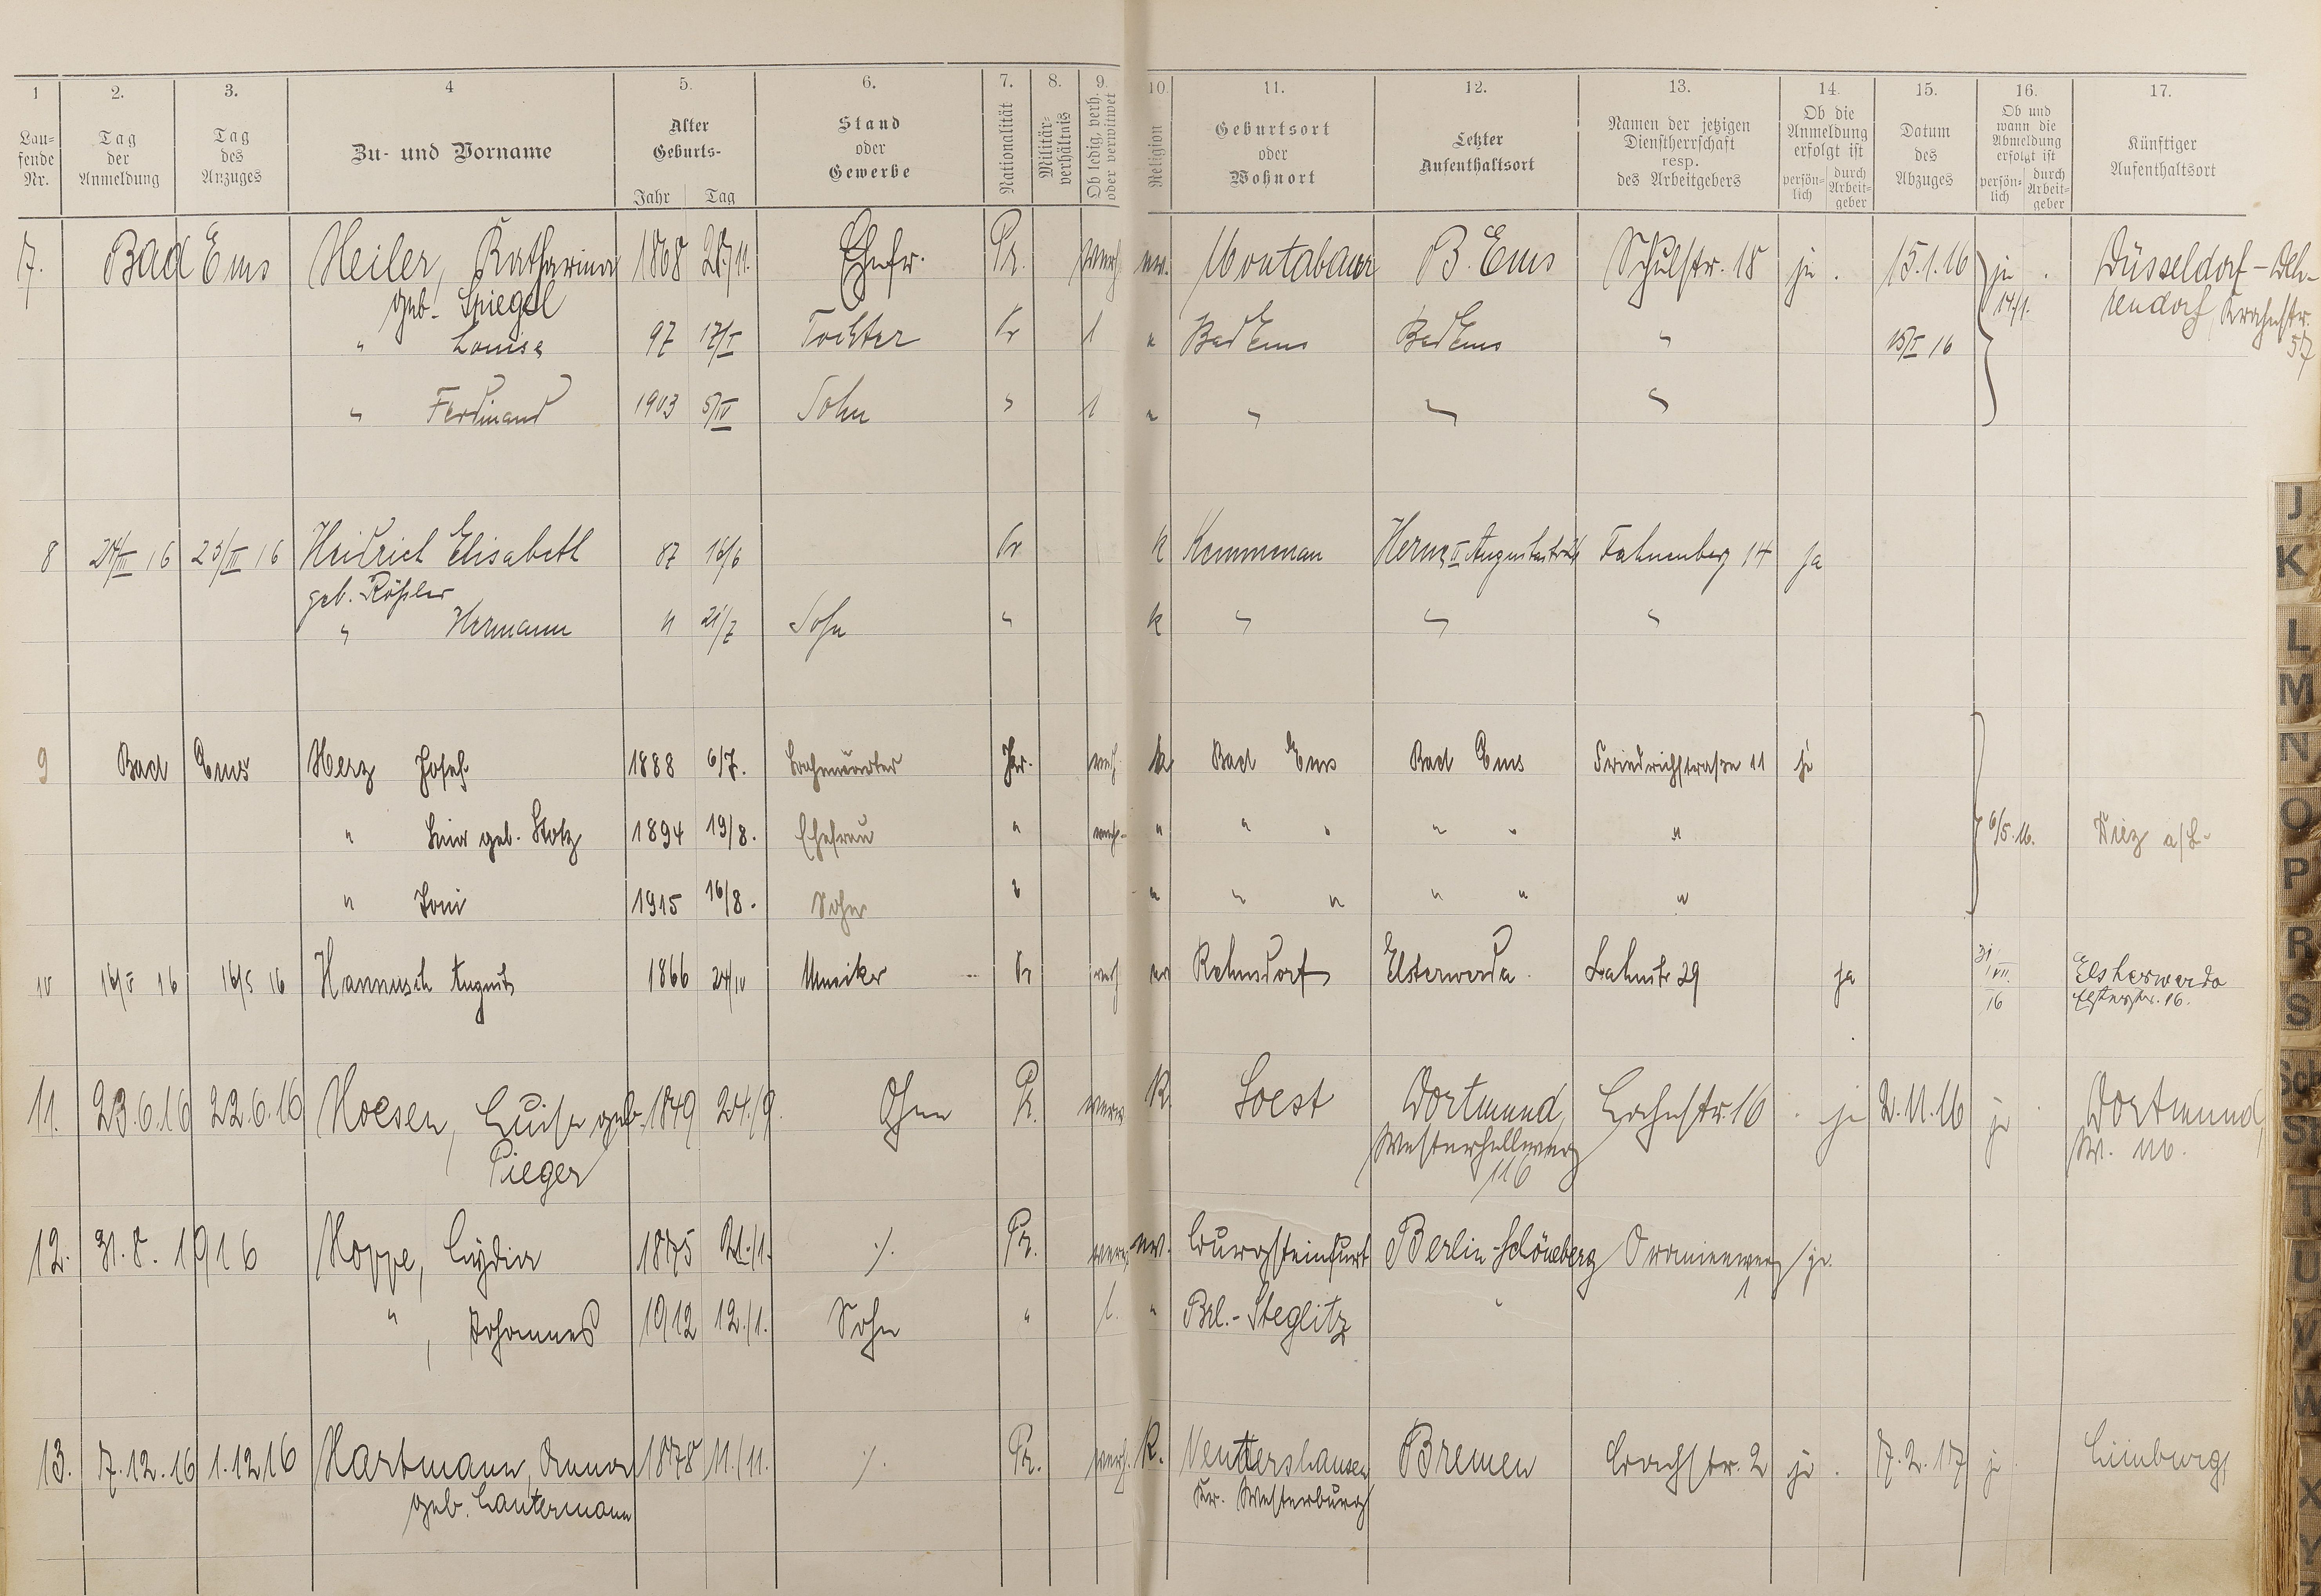 1 2. 3. 4 5. 6. 7. 8. 9. 10. 11. 12. 13. 14. 15. 16. 17.
Lau-
fende
Nr.
Tag
der
Anmeldung
Tag
des
Anzuges
Zu- und Vorname
Alter
Geburts-
Jahr Tag
Stand
oder
Gewerbe
Nationalität
Militär-
verhältnis
Ob ledig, verh.
oder verwitwet
Religion
Geburtsort
oder
Wohnort
Letzter
Aufenthaltsort
Namen der jetzigen
Dienstherrschaft
resp.
des Arbeitgebers
Ob die
Anmeldung
erfolgt ist
persön-
lich
durch
Arbeit-
geber
Datum
des
Abzuges
Ob und
wann die
Abmeldung
erfolgt ist
persön-
lich
durch
Arbeit-
geber
Künftiger
Aufenthaltsort
7. Bad Ems Heiler, Katharina 1868 28/11. Ehefr. Pr. verh. ev. Montabaur B. Ems Schulstr. 18 ja. 15.1.16 ja. Düsseldorf-Deh-
geb. Spiegel 14/1. rendorf, Krahestr.
" Louise 97 17/I Tochter Pr l " Bad Ems Bad Ems " 15/I 16 57
" Ferdinand 1903 5/IV Sohn " l " " " "
8 24/III 16 23/III 16 Heidrich Elisabeth 87 16/6 Pr k Kemmenau Herne II Fahnenberg 14 ja
geb. Rößler
" Hermann 11 21/7 Sohn " k " " "
9 Bad Ems Herz Josef 1888 6/7. Pr. verh. k Bad Ems Bad Ems Friedrichstrasse 11 ja
" geb. Stotz 1894 19/8. Ehefrau " verh. " " " " " " 6/5.16. Diez a/L.
" Toni 1915 16/8. Sohn " " " " " " "
10 16/5 16 16/5 16 Hannusch August 1866 24/10 Musiker Pr verh ev Rahnsdorf Elsterwerda Lahnstr 29 ja 31/VII. 16 Elsterwerda
Elsterstr. 16.
11. 23.6.16 22.6.16 Hoesen, Luise geb. 1849 24./9. Ohne Pr. verw. K. Soest Dortmund, Lahnstr. 16 ja 2.11.16 ja Dortmund,
Pieger Westerhellweg
116
12. 31.8.1916 Hoppe, Lydia 1875 21./1. ./. Pr. ev. Burgsteinfurt Berlin-Schöneberg Oranienweg 1 ja.
" , Johannes 1912 12./1. Sohn " l. " Brl.-Steglitz "
13. 7.12.16 1.12.16 Hartmann, Anna 1878 11./11. ./. Pr. verh. K. Bremen Bachstr. 2 ja. 7.2.17 ja Limburg
geb. Lautermann Kr. Westerburg
J
K
L
M
N
O
P
R
S
Sch
St
T
U
V
W
X
Y